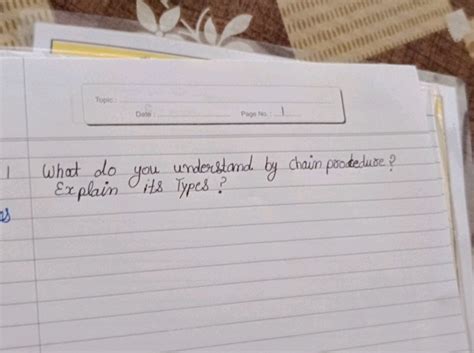 Topic:
Date: Page No.: 1
1 What do you understand by Chain procedure?
Explain its Types?